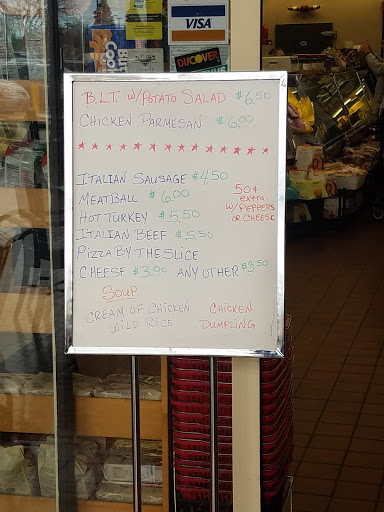 VISA
DISCOVER
B.L.T. W/POTATO SALAD $6.50
CHICKEN PARMESAN $6.00
ITALIAN SAUSAGE $4.50
MEATBALL $6.00
HOT TURKEY $5.50
ITALIAN BEEF $5.50
50¢
extra
W/PEPPERS
OR CHEESE
PIZZA BY THE SLICE
CHEESE $3.00 ANY OTHER $3.50
SOUP
CREAM OF CHICKEN
WILD RICE
CHICKEN
DUMPLING